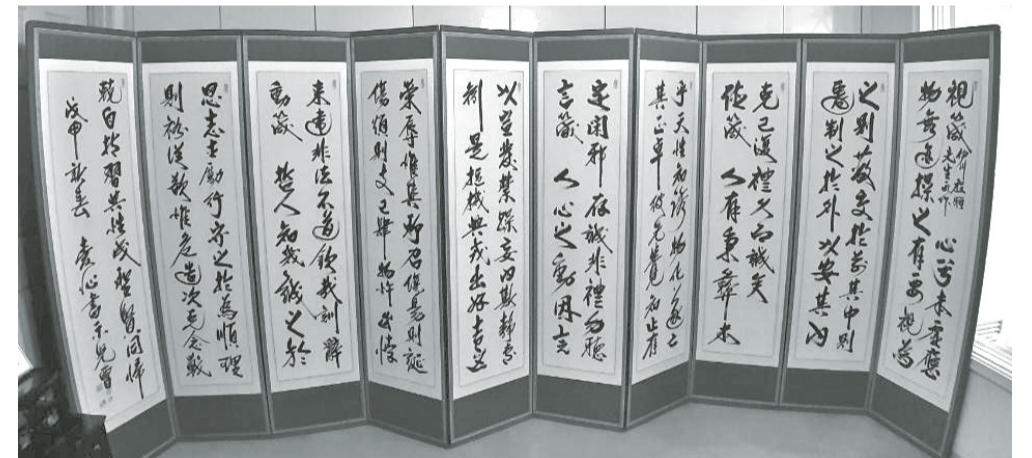 視箴 伊川程頤
先生所作
心兮本虛應
物無迹操之有要視爲
之則蔽交於前其中則
遷制之於外以安其內
克己復禮久而誠矣
聽箴 人有秉彝本
乎天性知誘物化遂亡
其正卓彼先覺知止有
定閑邪存誠非禮勿聽
言箴 人心之動因言
以宣發禁躁妄內斯靜專
矧是樞機興戎出好吉凶
榮辱惟其所召傷易則誕
傷煩則支己肆物忤出悖
來違非法不道欽哉訓辭
動箴 哲人知幾誠之於
思志士勵行守之於爲順理
則裕從欲惟危造次克念戰
兢自持習與性成聖賢同歸
戊申新春 心書示兒曹